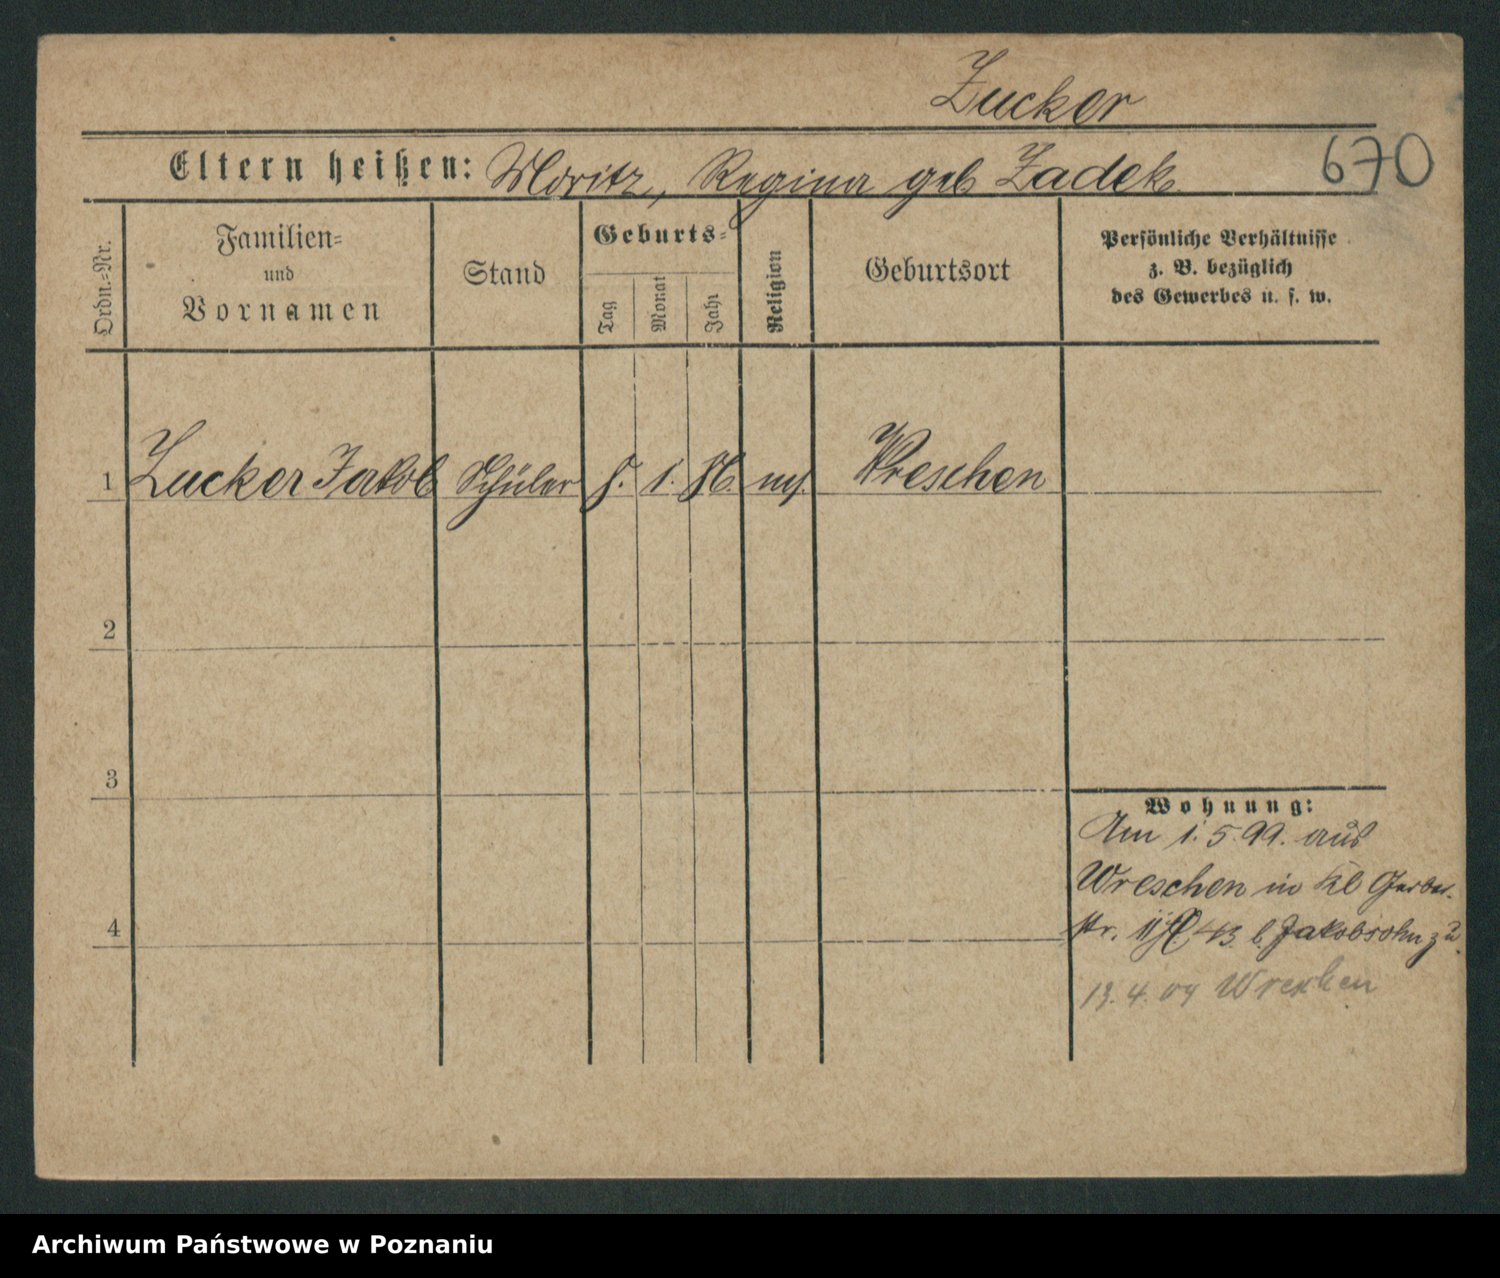 Zucker
Eltern heißen: Moritz, Regina geb Zadek
670
Ordn.=Nr.
Familien=
und
Vornamen
Stand
Geburts=
Tag
Monat
Jahr
Religion
Geburtsort
Persönliche Verhältnisse
z. B. bezüglich
des Gewerbes u. s. w.
1 Zucker Jakob Schüler 1. Wreschen
2
3
4
Wohnung:
Am 1. 5. 99. aus
Wreschen in Kl Gerber-
str. b. Jakobsohn zu.
13. 4. 04 Wreschen
Archiwum Państwowe w Poznaniu